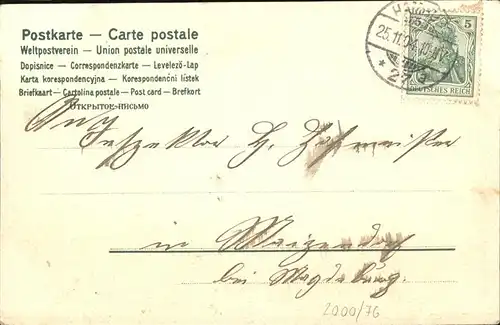 Postkarte — Carte postale
Weltpostverein — Union postale universelle
Dopisnice — Correspondenzkarte — Levelező-Lap
Karta korespondencyjna — Korespondenční lístek
Briefkaart — Cartolina postale — Post card — Brefkort
Открытое-письмо
5
25.11.04
DEUTSCHES REICH
An
Inspektor H.
in
bei Magdeburg.
2000/76